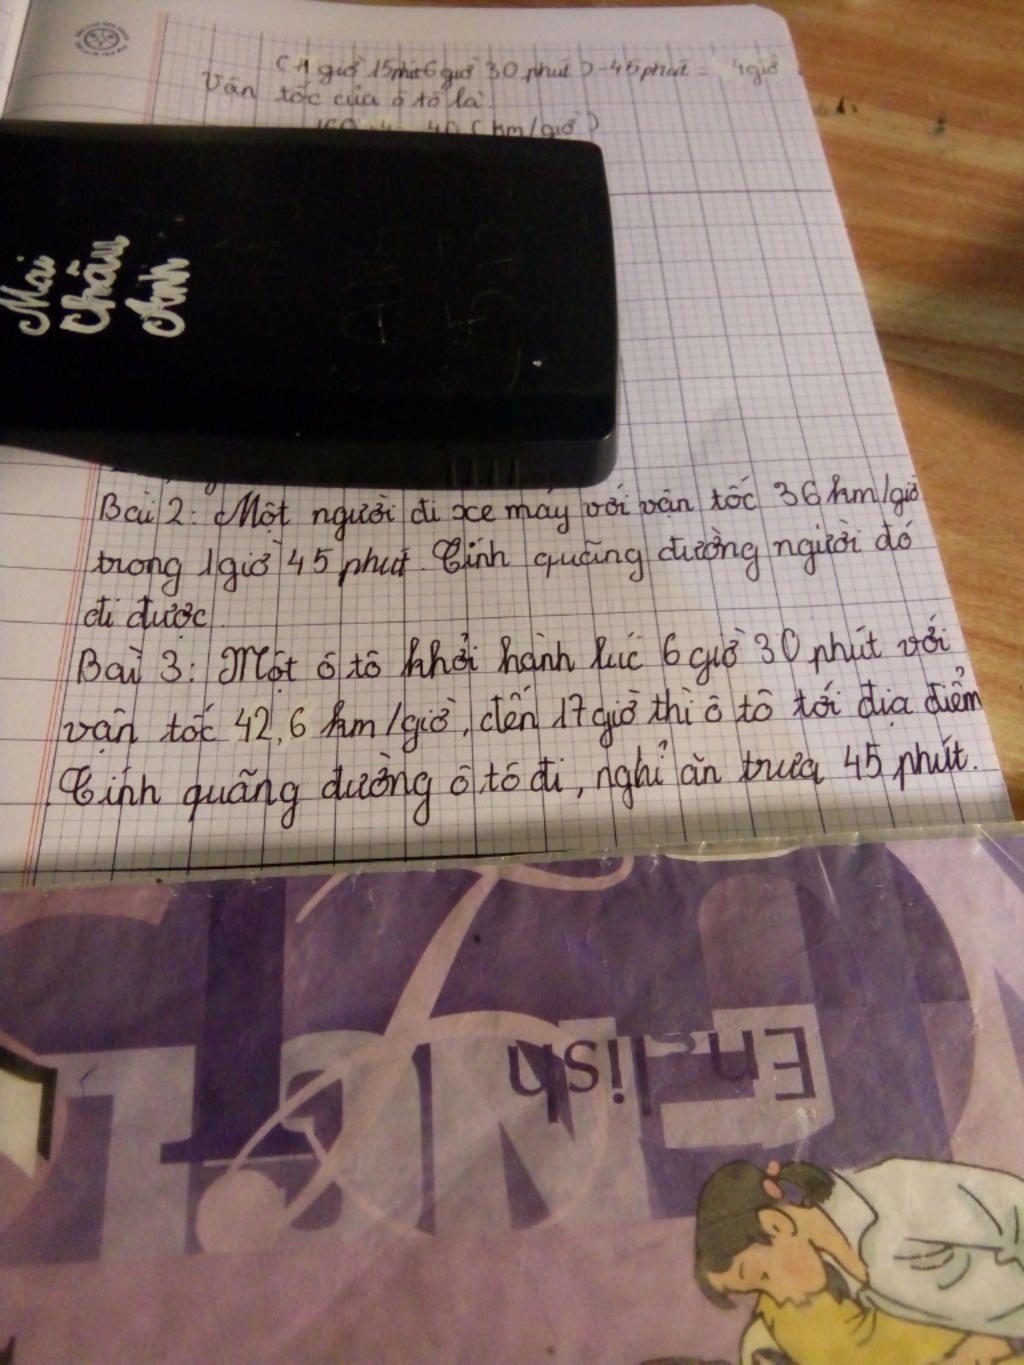 (11 giờ 15 phút - 6 giờ 30 phút) - 45 phút = 4 giờ
Vận tốc của ô tô là:
160 : 4 = 40 (km/giờ)
Mai
Châu
Anh
Bài 2: Một người đi xe máy với vận tốc 36 km/giờ
trong 1 giờ 45 phút. Tính quãng đường người đó
đi được.
Bài 3: Một ô tô khởi hành lúc 6 giờ 30 phút với
vận tốc 42,6 km/giờ, đến 17 giờ thì ô tô tới địa điểm
Tính quãng đường ô tô đi, nghỉ ăn trưa 45 phút.
English